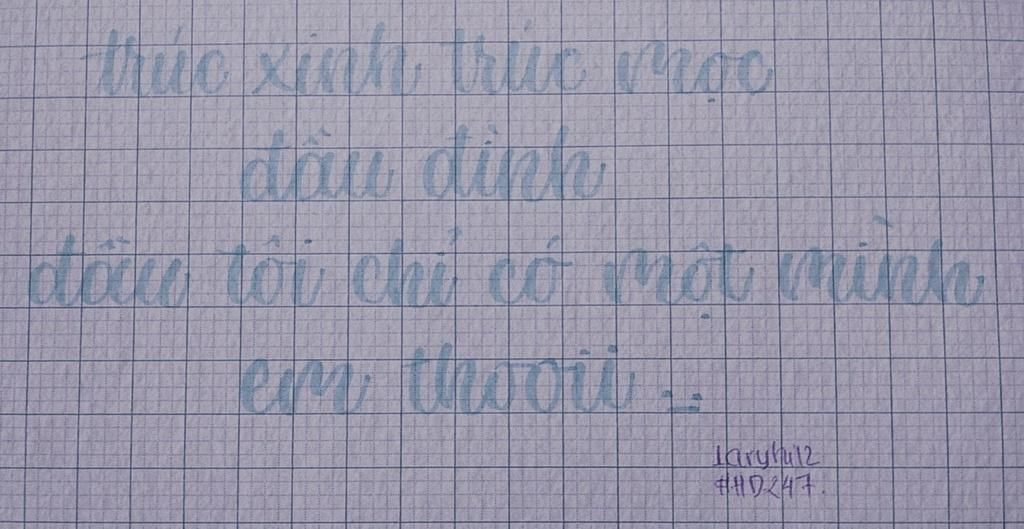 trúc xinh trúc mọc
đầu đình
dẫu tôi chỉ có một mình
em thooii
#HD247.